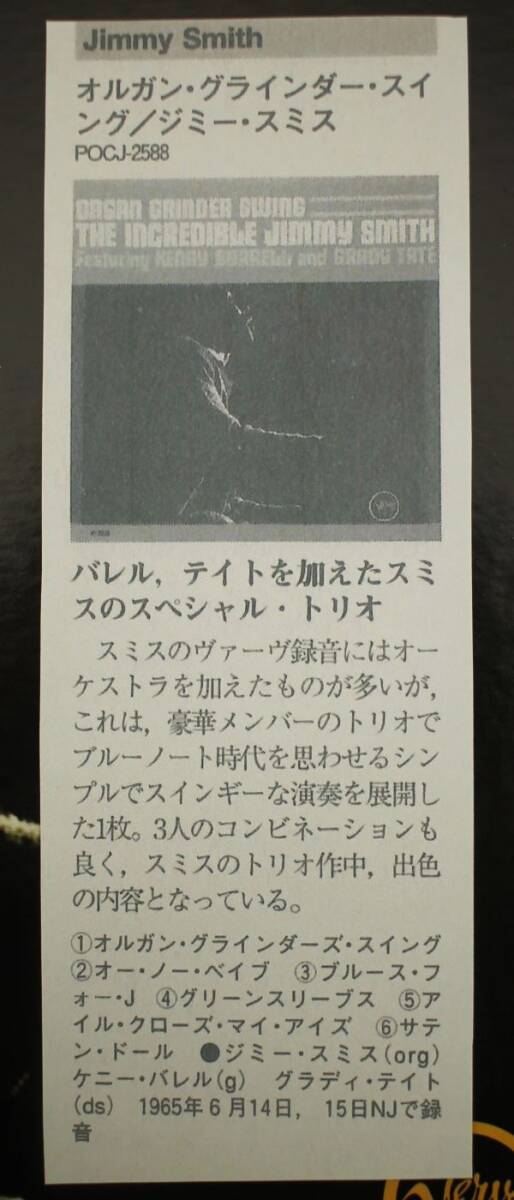 Jimmy Smith
オルガン・グラインダー・スイ
ング／ジミー・スミス
POCJ-2588
ORGAN GRINDER SWING
THE INCREDIBLE JIMMY SMITH
Featuring KENNY BURRELL and GRADY TATE
バレル，テイトを加えたスミ
スのスペシャル・トリオ
スミスのヴァーヴ録音にはオー
ケストラを加えたものが多いが，
これは，豪華メンバーのトリオで
ブルーノート時代を思わせるシン
プルでスインギーな演奏を展開し
た1枚。3人のコンビネーションも
良く，スミスのトリオ作中，出色
の内容となっている。
①オルガン・グラインダーズ・スイング
②オー・ノー・ベイブ ③ブルース・フ
ォー・J ④グリーンスリーブス ⑤ア
イル・クローズ・マイ・アイズ ⑥サテ
ン・ドール ●ジミー・スミス(org)
ケニー・バレル(g) グラディ・テイト
(ds) 1965年6月14日，15日NJで録
音